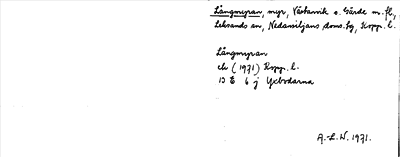 Långmyran, myr, Västanvik o. Gärde m. fl.,
Leksands sn, Nedansiljans doms. hg, Kopp. l.
Långmyran
ek (1971) Kopp. l.
13 E 6 j Yxbodarna
A.-L. N. 1971.